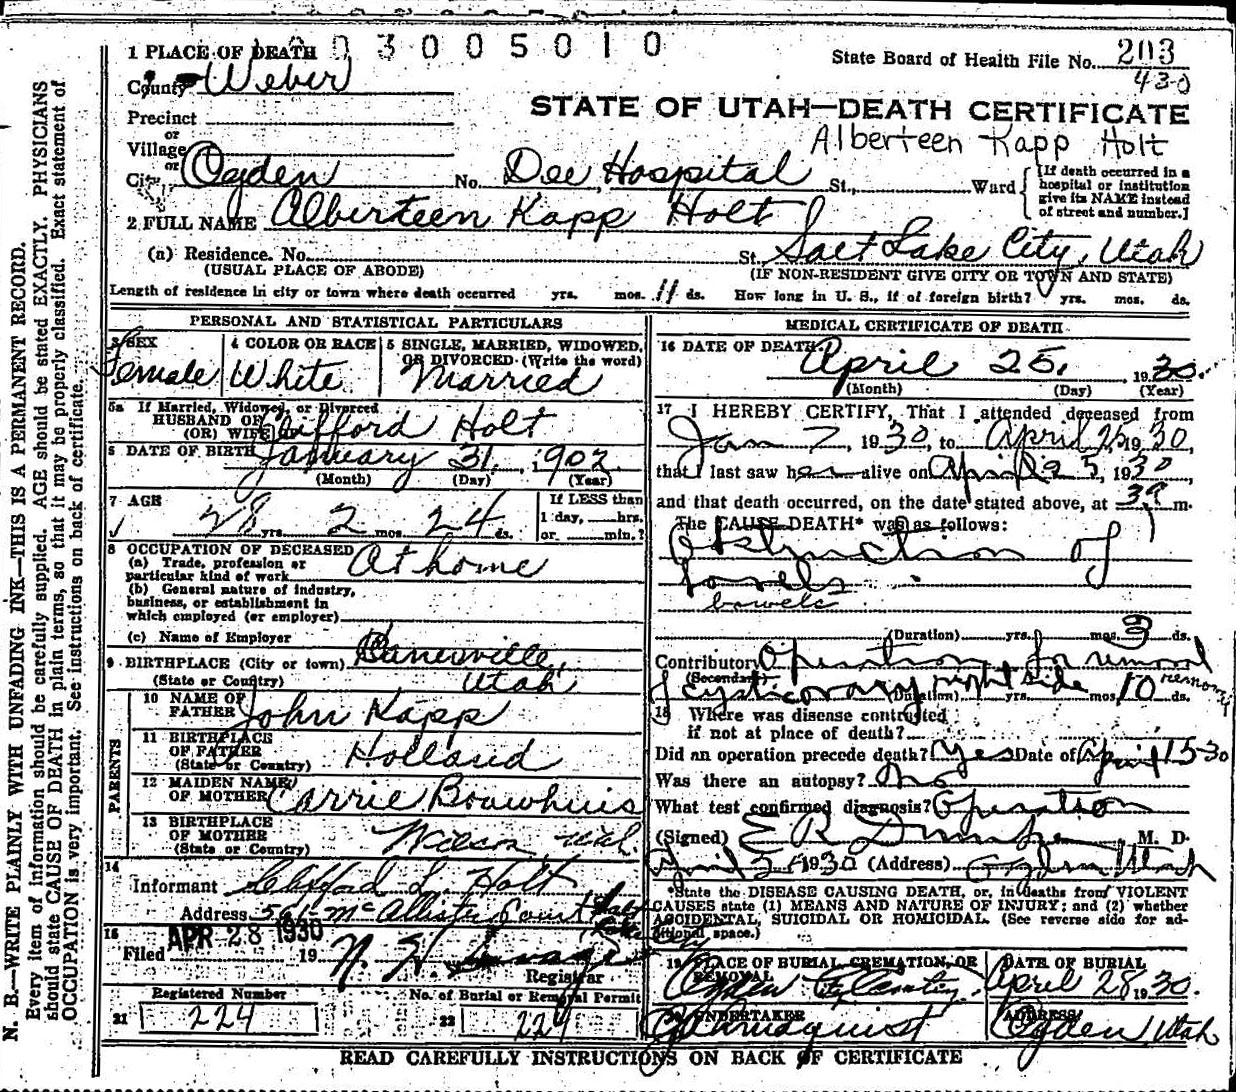 1 PLACE OF DEATH 003005010
State Board of Health File No. 203
430
County Weber
STATE OF UTAH—DEATH CERTIFICATE
Precinct
or
Village
or
City Ogden No. Dee Hospital St., Ward
Alberteen Kapp Holt
[If death occurred in a hospital or institution give its NAME instead of street and number.]
2 FULL NAME Alberteen Kapp Holt
(a) Residence. No. St. Salt Lake City, Utah
(USUAL PLACE OF ABODE) (IF NON-RESIDENT GIVE CITY OR TOWN AND STATE)
Length of residence in city or town where death occurred yrs. mos. 11 ds. How long in U. S., if of foreign birth? yrs. mos. ds.
PERSONAL AND STATISTICAL PARTICULARS
3 SEX Female
4 COLOR OR RACE White
5 SINGLE, MARRIED, WIDOWED, OR DIVORCED (Write the word) Married
5a If Married, Widowed, or Divorced
HUSBAND OF
(OR) WIFE OF Clifford Holt
6 DATE OF BIRTH January 31, 1902
(Month) (Day) (Year)
7 AGE 28 yrs. 2 mos. 24 ds.
If LESS than
1 day, hrs.
or min.?
8 OCCUPATION OF DECEASED
(a) Trade, profession or
particular kind of work At home
(b) General nature of industry,
business, or establishment in
which employed (or employer)
(c) Name of Employer
9 BIRTHPLACE (City or town) Kanesville,
(State or Country) Utah
PARENTS
10 NAME OF
FATHER John Kapp
11 BIRTHPLACE
OF FATHER
(State or Country) Holland
12 MAIDEN NAME
OF MOTHER Carrie Bouwhuis
13 BIRTHPLACE
OF MOTHER
(State or Country) Wilson, Utah.
14
Informant Clifford L. Holt
Address McAllister Court
15
Filed APR 28 1930 19 N. H. Savage
Registrar
Registered Number No. of Burial or Removal Permit
21 224 22 224
MEDICAL CERTIFICATE OF DEATH
16 DATE OF DEATH April 25, 1930.
(Month) (Day) (Year)
17 I HEREBY CERTIFY, That I attended deceased from
Jan 7, 1930, to April 25, 1930,
that I last saw her alive on April 25, 1930
and that death occurred, on the date stated above, at m.
The CAUSE DEATH* was as follows:
Obstruction of
bowels
bowels
(Duration) yrs. mos. 3 ds.
Contributory Operation for removal
(Secondary)
of cystic ovary right side (Duration) yrs. mos. 10 ds.
18 Where was disease contracted
if not at place of death?
Did an operation precede death? Yes Date of April 15-30
Was there an autopsy? No
What test confirmed diagnosis? Operation
(Signed) E R Dumke M. D.
April 1930 (Address) Ogden Utah
*State the DISEASE CAUSING DEATH, or, in deaths from VIOLENT
CAUSES state (1) MEANS AND NATURE OF INJURY; and (2) whether
ACCIDENTAL, SUICIDAL OR HOMICIDAL. (See reverse side for additional space.)
19 PLACE OF BURIAL, CREMATION, OR
REMOVAL Ogden City Cemetery
DATE OF BURIAL
April 28, 1930.
20 UNDERTAKER Lindquist
ADDRESS
Ogden, Utah
READ CAREFULLY INSTRUCTIONS ON BACK OF CERTIFICATE
N. B.—WRITE PLAINLY WITH UNFADING INK—THIS IS A PERMANENT RECORD.
Every item of information should be carefully supplied. AGE should be stated EXACTLY. PHYSICIANS
should state CAUSE OF DEATH in plain terms, so that it may be properly classified. Exact statement of
OCCUPATION is very important. See instructions on back of certificate.